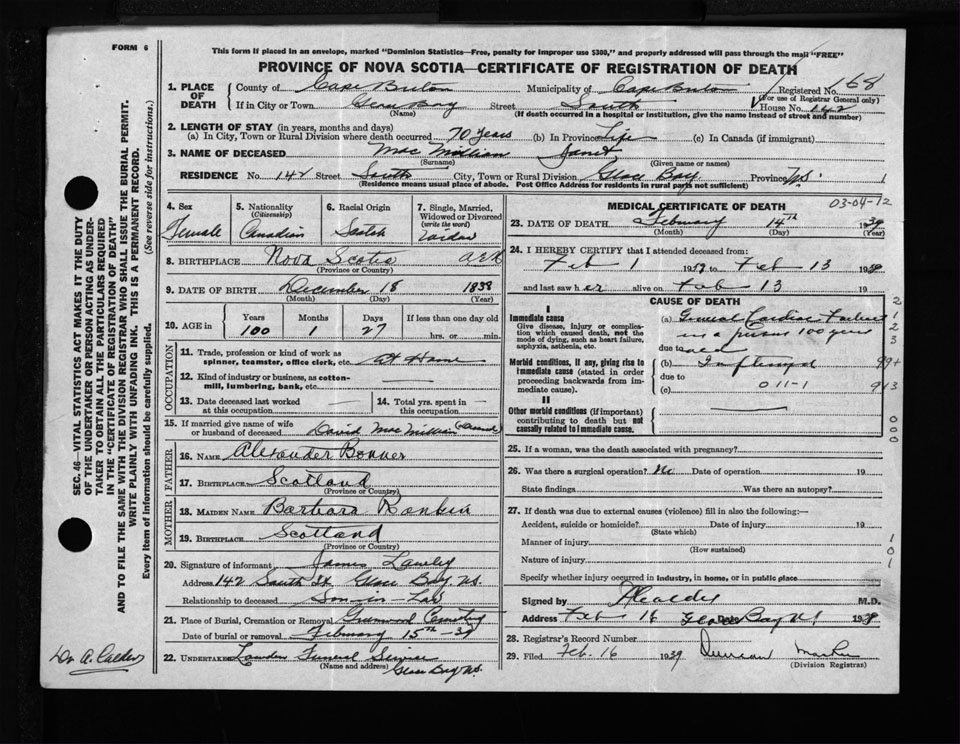 FORM 6
This form if placed in an envelope, marked "Dominion Statistics—Free, penalty for improper use $300," and properly addressed will pass through the mail "FREE"
PROVINCE OF NOVA SCOTIA—CERTIFICATE OF REGISTRATION OF DEATH
168
1. PLACE OF DEATH
County of Cape Breton Municipality of Cape Breton Registered No.
(For use of Registrar General only)
If in City or Town Glace Bay Street South House No. 142
(Name) (If death occurred in a hospital or institution, give the name instead of street and number)
2. LENGTH OF STAY (in years, months and days)
(a) In City, Town or Rural Division where death occurred 70 years (b) In Province Life (c) In Canada (if immigrant)
3. NAME OF DECEASED Mac Millian Janet
(Surname) (Given name or names)
RESIDENCE No. 142 Street South City, Town or Rural Division Glace Bay Province N.S.
(Residence means usual place of abode. Post Office Address for residents in rural parts not sufficient)
4. Sex Female
5. Nationality (Citizenship) Canadian
6. Racial Origin Scotch
7. Single, Married, Widowed or Divorced (write the word) Widow
8. BIRTHPLACE Nova Scotia
(Province or Country)
9. DATE OF BIRTH December 18 1838
(Month) (Day) (Year)
10. AGE in Years 100 Months 1 Days 27 If less than one day old
hrs. or min.
OCCUPATION
11. Trade, profession or kind of work as spinner, teamster, office clerk, etc. At Home
12. Kind of industry or business, as cotton-mill, lumbering, bank, etc.
13. Date deceased last worked at this occupation
14. Total yrs. spent in this occupation
15. If married give name of wife or husband of deceased David Mac Millian
FATHER
16. NAME Alexander Bonner
17. BIRTHPLACE Scotland
(Province or Country)
MOTHER
18. MAIDEN NAME Barbara Rankin
19. BIRTHPLACE Scotland
(Province or Country)
20. Signature of informant James Lawley
Address 142 South St Glace Bay N.S.
Relationship to deceased Son-in-Law
21. Place of Burial, Cremation or Removal Greenwood Cemetery
Date of burial or removal February 15th-39
22. UNDERTAKER Funeral Service
(Name and address) Glace Bay N.S.
MEDICAL CERTIFICATE OF DEATH
03-04-12
23. DATE OF DEATH February 14th 1939
(Month) (Day) (Year)
24. I HEREBY CERTIFY that I attended deceased from:
Feb 1 19 to Feb 13 1939
and last saw her alive on Feb 13 19
CAUSE OF DEATH
I
Immediate cause
Give disease, injury or complication which caused death, not the mode of dying, such as heart failure, asphyxia, asthenia, etc.
(a) General Cardiac Failure
in a person 100 years
due to old
Morbid conditions, if any, giving rise to immediate cause (stated in order proceeding backwards from immediate cause).
(b) Influenza
due to
(c) 011-1
II
Other morbid conditions (if important) contributing to death but not causally related to immediate cause.
2
1
2
3
99+
943
0
0
0
25. If a woman, was the death associated with pregnancy?
26. Was there a surgical operation? No Date of operation 19
State findings Was there an autopsy?
27. If death was due to external causes (violence) fill in also the following:—
Accident, suicide or homicide? Date of injury 19
(State which)
Manner of injury
(How sustained)
Nature of injury
Specify whether injury occurred in industry, in home, or in public place
1
0
1
Signed by A Calder M.D.
Address Feb 16 Glace Bay N.S. 1939
28. Registrar's Record Number
29. Filed Feb. 16 1939 Duncan
(Division Registrar)
SEC. 46—VITAL STATISTICS ACT MAKES IT THE DUTY
OF THE UNDERTAKER OR PERSON ACTING AS UNDER-
TAKER TO OBTAIN ALL THE PARTICULARS REQUIRED
IN THE "CERTIFICATE OF REGISTRATION OF DEATH"
AND TO FILE THE SAME WITH THE DIVISION REGISTRAR WHO SHALL ISSUE THE BURIAL PERMIT.
WRITE PLAINLY WITH UNFADING INK. THIS IS A PERMANENT RECORD.
Every item of information should be carefully supplied. (See reverse side for instructions.)
Dr A. Calder